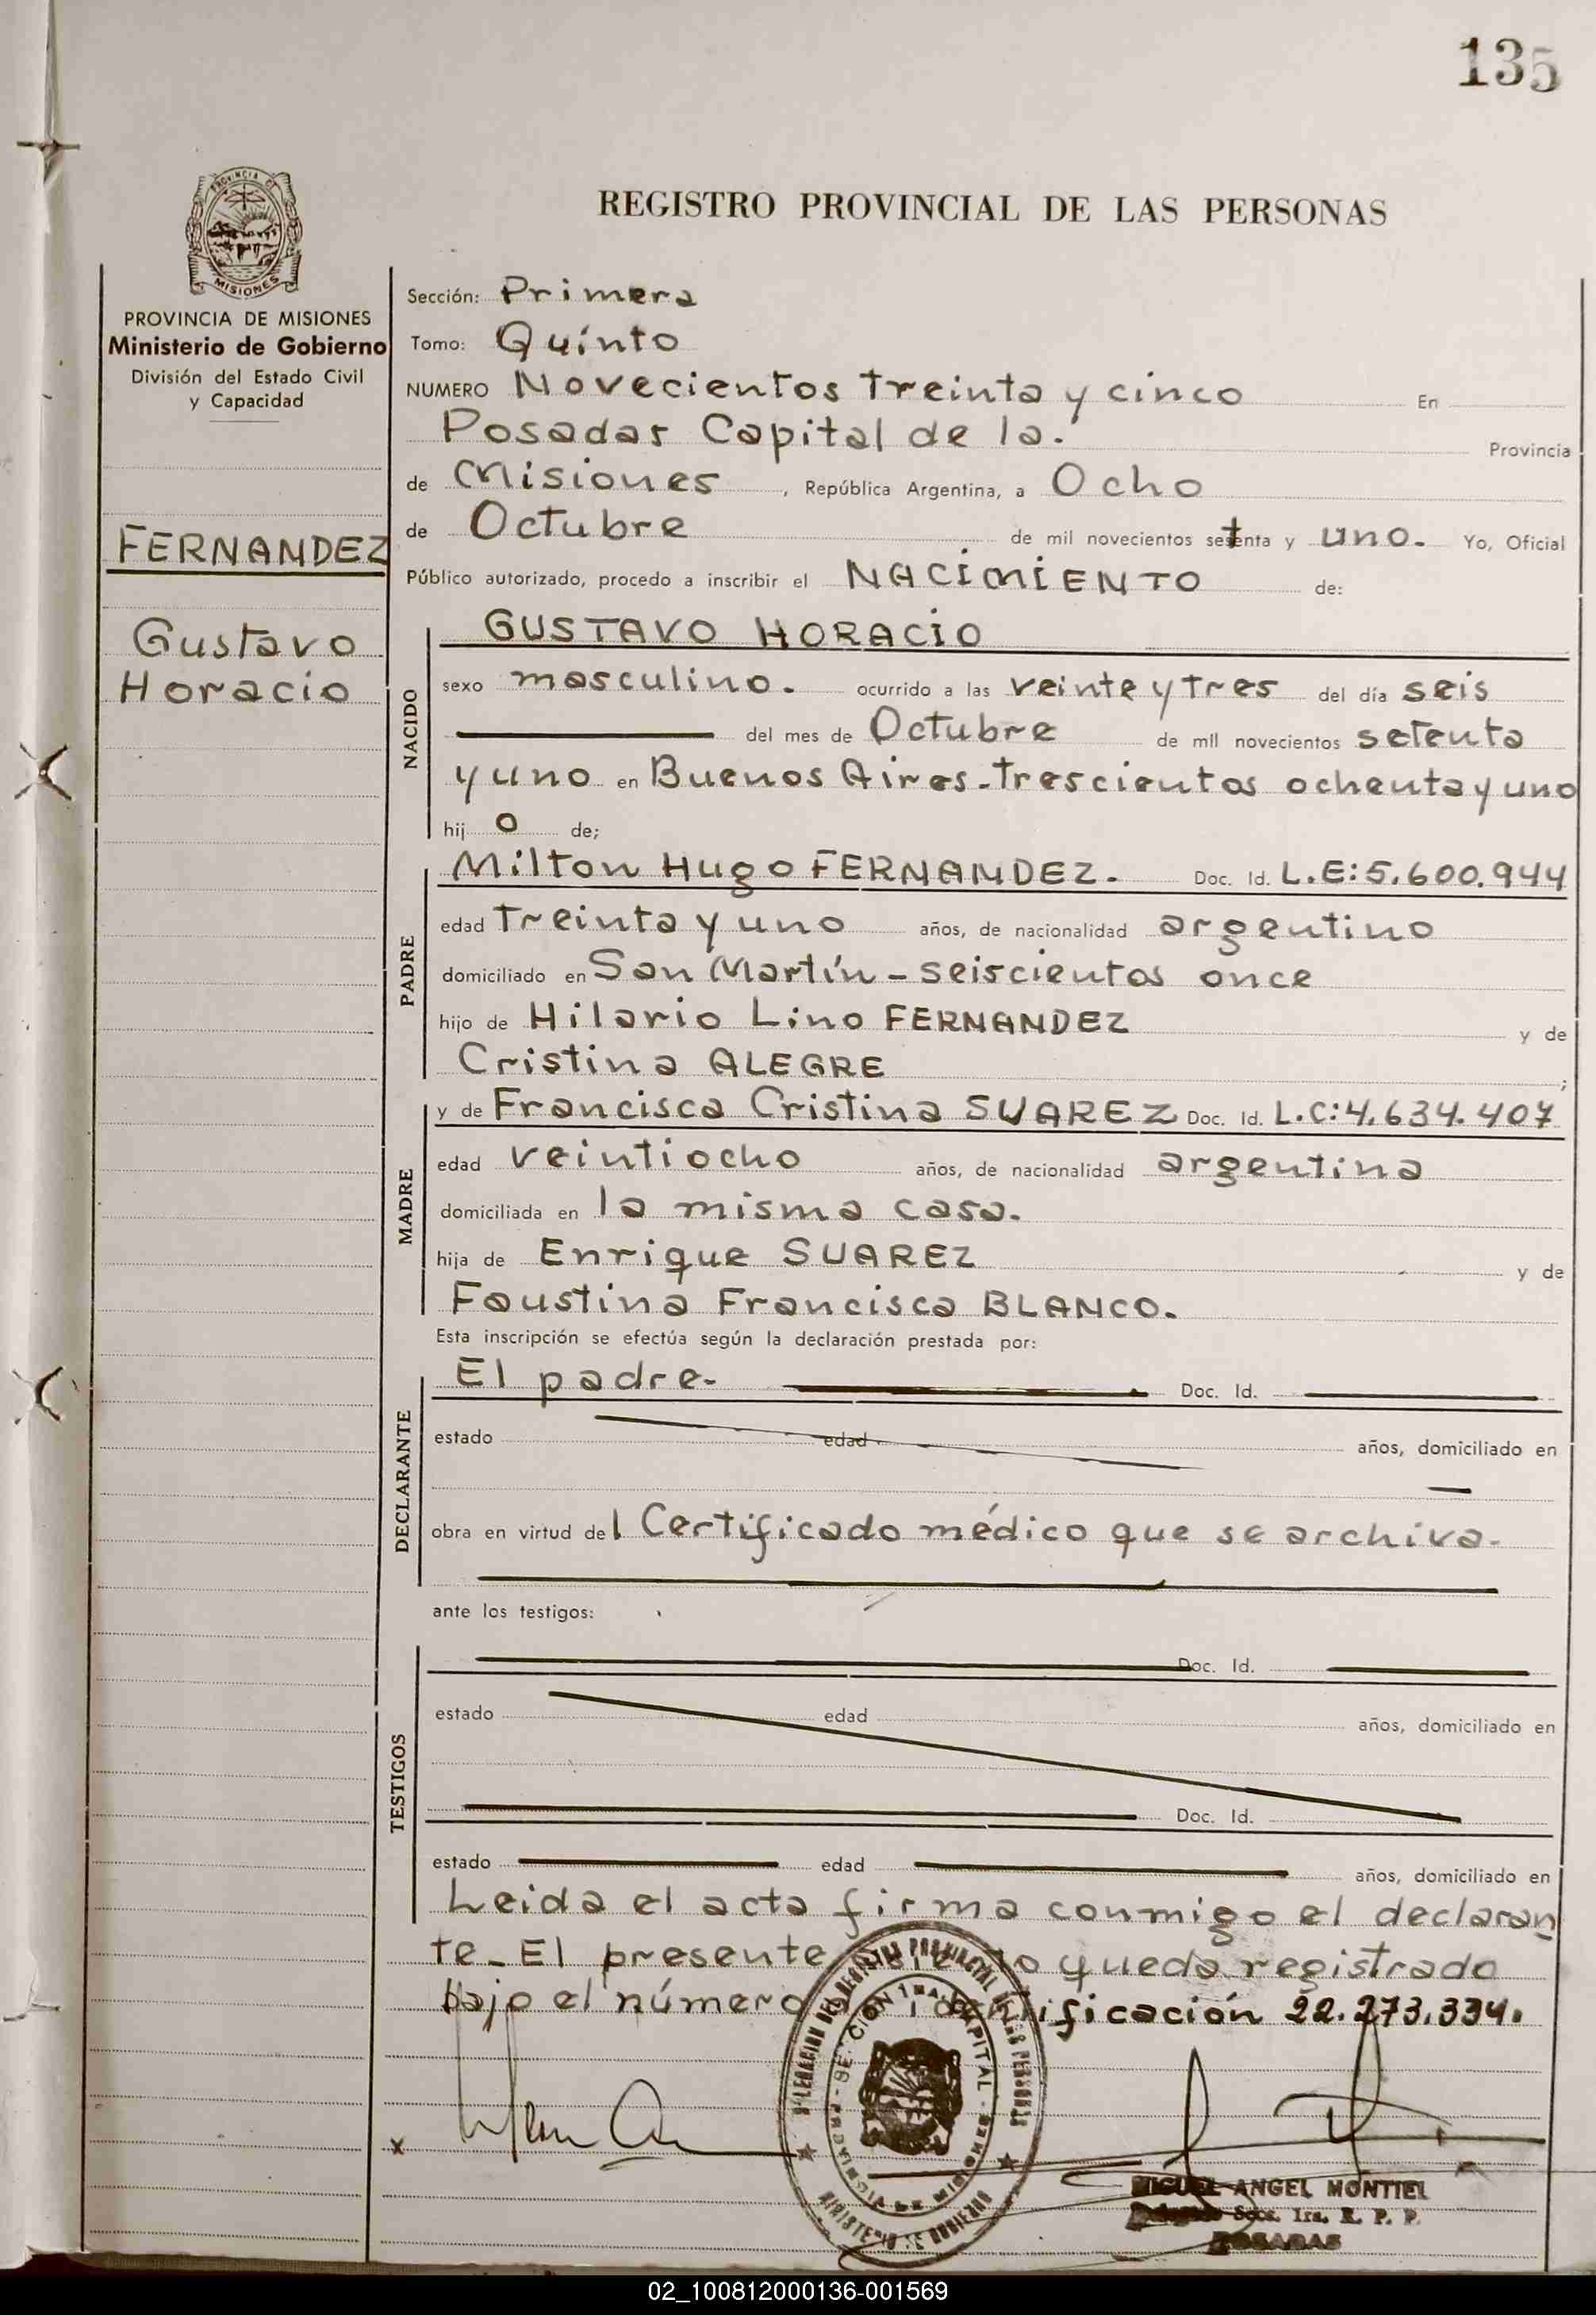 135
REGISTRO PROVINCIAL DE LAS PERSONAS
PROVINCIA DE MISIONES
Ministerio de Gobierno
División del Estado Civil
y Capacidad
FERNANDEZ
Gustavo
Horacio
Sección: Primera
Tomo: Quinto
NUMERO Novecientos treinta y cinco En
Posadas Capital de la. Provincia
de Misiones, República Argentina, a Ocho
de Octubre de mil novecientos setenta y uno. Yo, Oficial
Público autorizado, procedo a inscribir el NACIMIENTO de:
NACIDO
GUSTAVO HORACIO
sexo masculino. ocurrido a las veinte y tres del día seis
del mes de Octubre de mil novecientos setenta
y uno en Buenos Aires-trescientos ochenta y uno
hijo de;
PADRE
Milton Hugo FERNANDEZ. Doc. Id. L.E:5.600.944
edad treinta y uno años, de nacionalidad argentino
domiciliado en San Martín - seiscientos once
hijo de Hilario Lino FERNANDEZ y de
Cristina ALEGRE ;
MADRE
y de Francisca Cristina SUAREZ Doc. Id. L.C:4.634.407
edad veintiocho años, de nacionalidad argentina
domiciliada en la misma casa.
hija de Enrique SUAREZ y de
Faustina Francisca BLANCO.
Esta inscripción se efectúa según la declaración prestada por:
DECLARANTE
El padre- Doc. Id.
estado edad años, domiciliado en
obra en virtud del Certificado médico que se archiva-
ante los testigos:
TESTIGOS
Doc. Id.
estado edad años, domiciliado en
Doc. Id.
estado edad años, domiciliado en
Leida el acta firma conmigo el declaran
te-El presente queda registrado
bajo el número identificación 22.273.334.
x
MIGUEL ANGEL MONTIEL
Secc. 1ra. R. P. P.
POSADAS
02_100812000136-001569